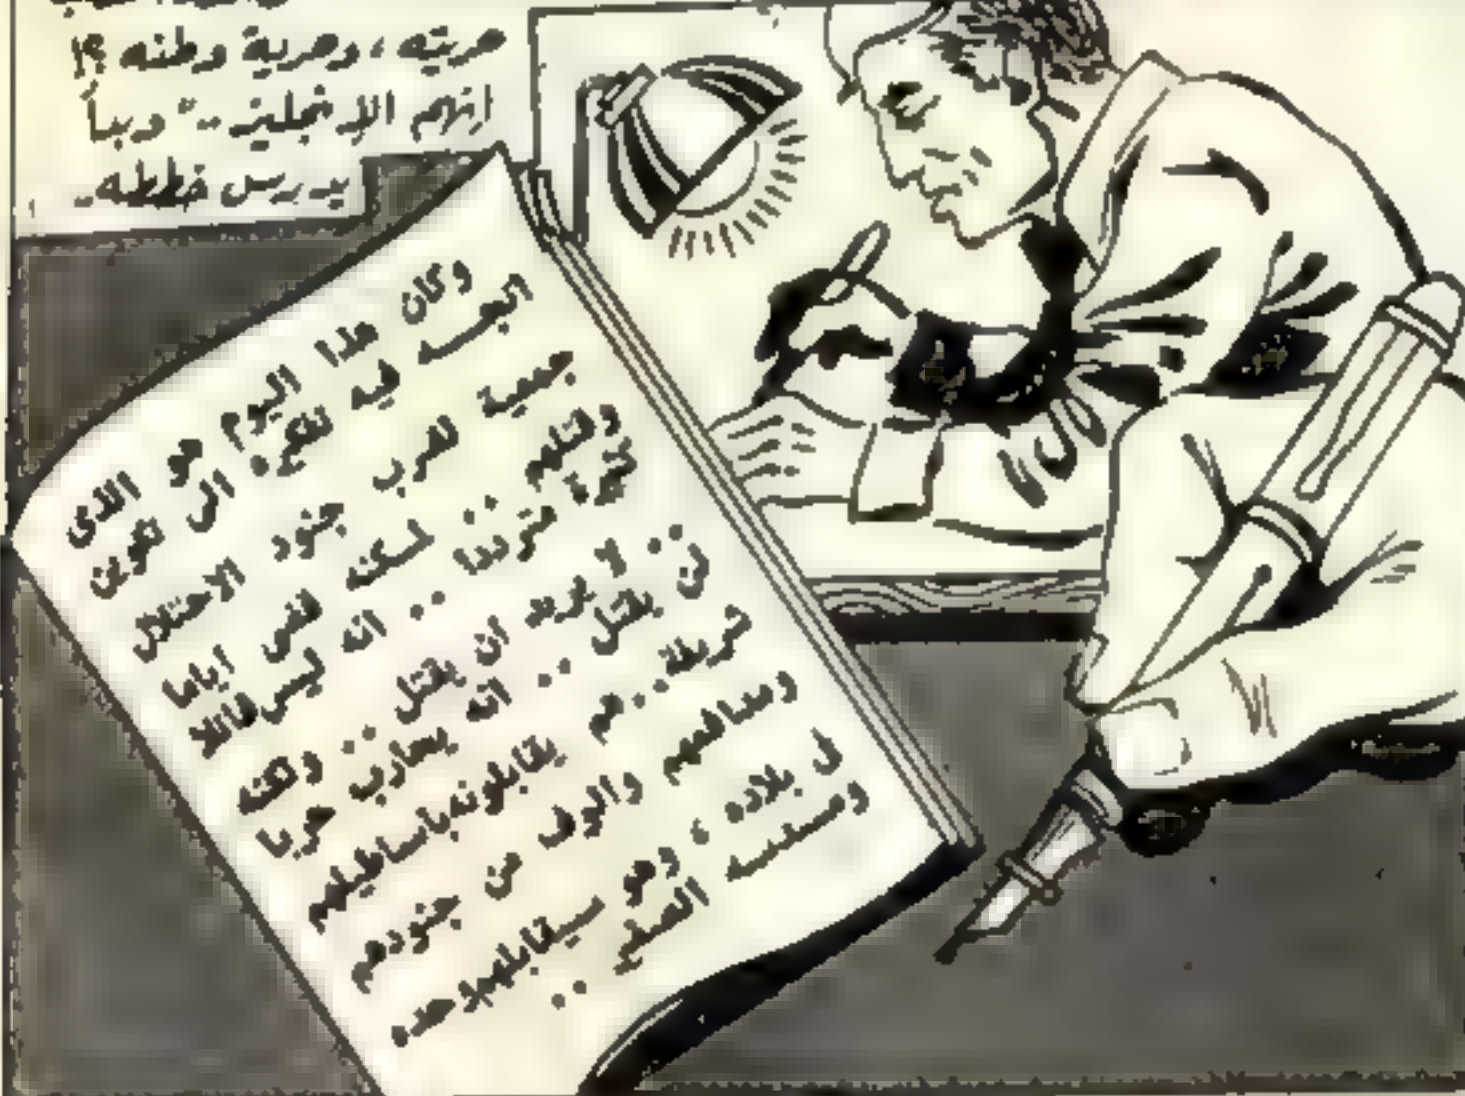 حريته ، وحرية وطنه ؟!
انهم الإنجليز .. " وبدأ
يدرس خططه ..
وكان هذا اليوم هو الذى
اتجه فيه تفكيره الى تكوين
جمعية لضرب جنود الاحتلال
وقتلهم .. لكنه قضى اياما
كثيرة مترددا .. انه ليس قاتلا
.. لا يريد ان يقتل .. ولكنه
لن يقتل .. انه يحارب حربا
شريفة .. هم يقابلونه باساطيلهم
ومدافعهم والوف من جنودهم
فى بلاده ، وهو سيقابلهم وحده
ومسدسه الصغير ..